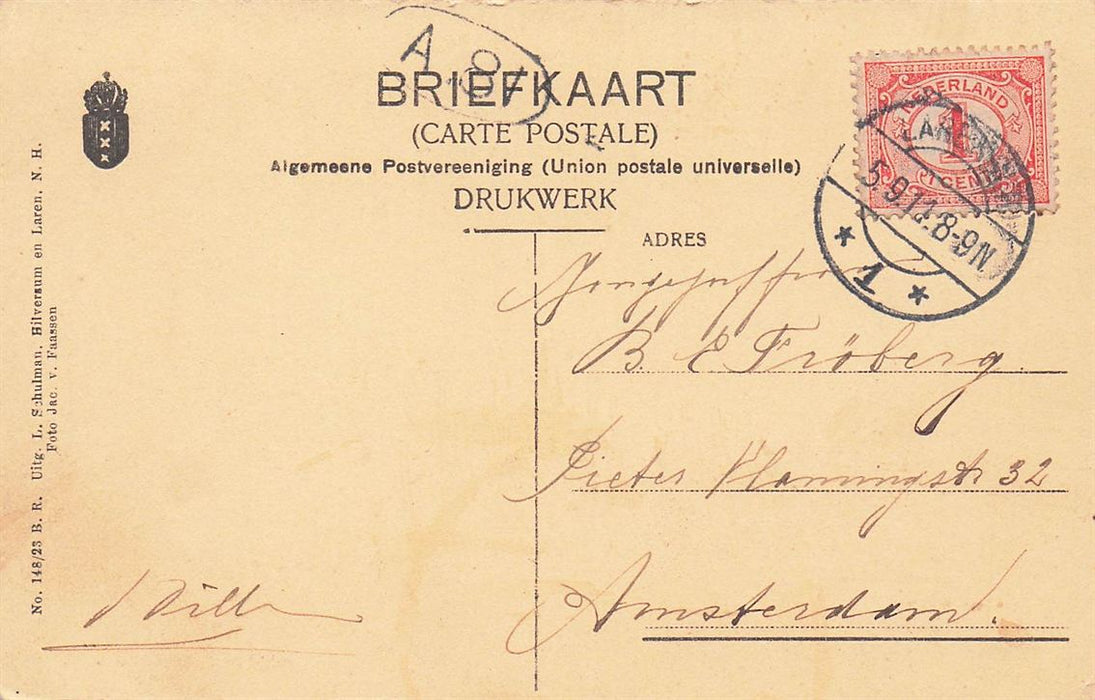 A 91
BRIEFKAART
(CARTE POSTALE)
Algemeene Postvereeniging (Union postale universelle)
DRUKWERK
ADRES
NEDERLAND
1
CENT
LAREN
5.9.11.8-9N
1
Jongejuffrouw
B. E Fröberg.
Pieter Vlamingstr 32
Amsterdam.
No. 148/23 B. R. Uitg. L. Schulman, Hilversum en Laren. N. H.
Foto Jac. v. Faassen